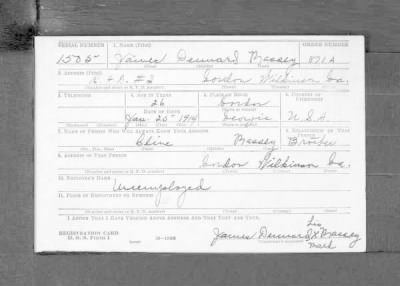 SERIAL NUMBER 1. NAME (Print) ORDER NUMBER
1505 James Dennard Bassey 871A
2. ADDRESS (Print)
R + D. #2 Gordon Wilkinson Ga.
3. TELEPHONE 4. AGE IN YEARS 5. PLACE OF BIRTH 6. COUNTRY OF CITIZENSHIP
26 Gordon
DATE OF BIRTH
Jan. 20 1914 Georgia U.S.A.
7. NAME OF PERSON WHO WILL ALWAYS KNOW YOUR ADDRESS 8. RELATIONSHIP OF THAT PERSON
Cline Bassey Brother
9. ADDRESS OF THAT PERSON
Gordon Wilkinson Ga.
10. EMPLOYER'S NAME
Unemployed
11. PLACE OF EMPLOYMENT OR BUSINESS
I AFFIRM THAT I HAVE VERIFIED ABOVE ANSWERS AND THAT THEY ARE TRUE.
REGISTRATION CARD
D. S. S. Form 1
his
James Dennard X Bassey
mark